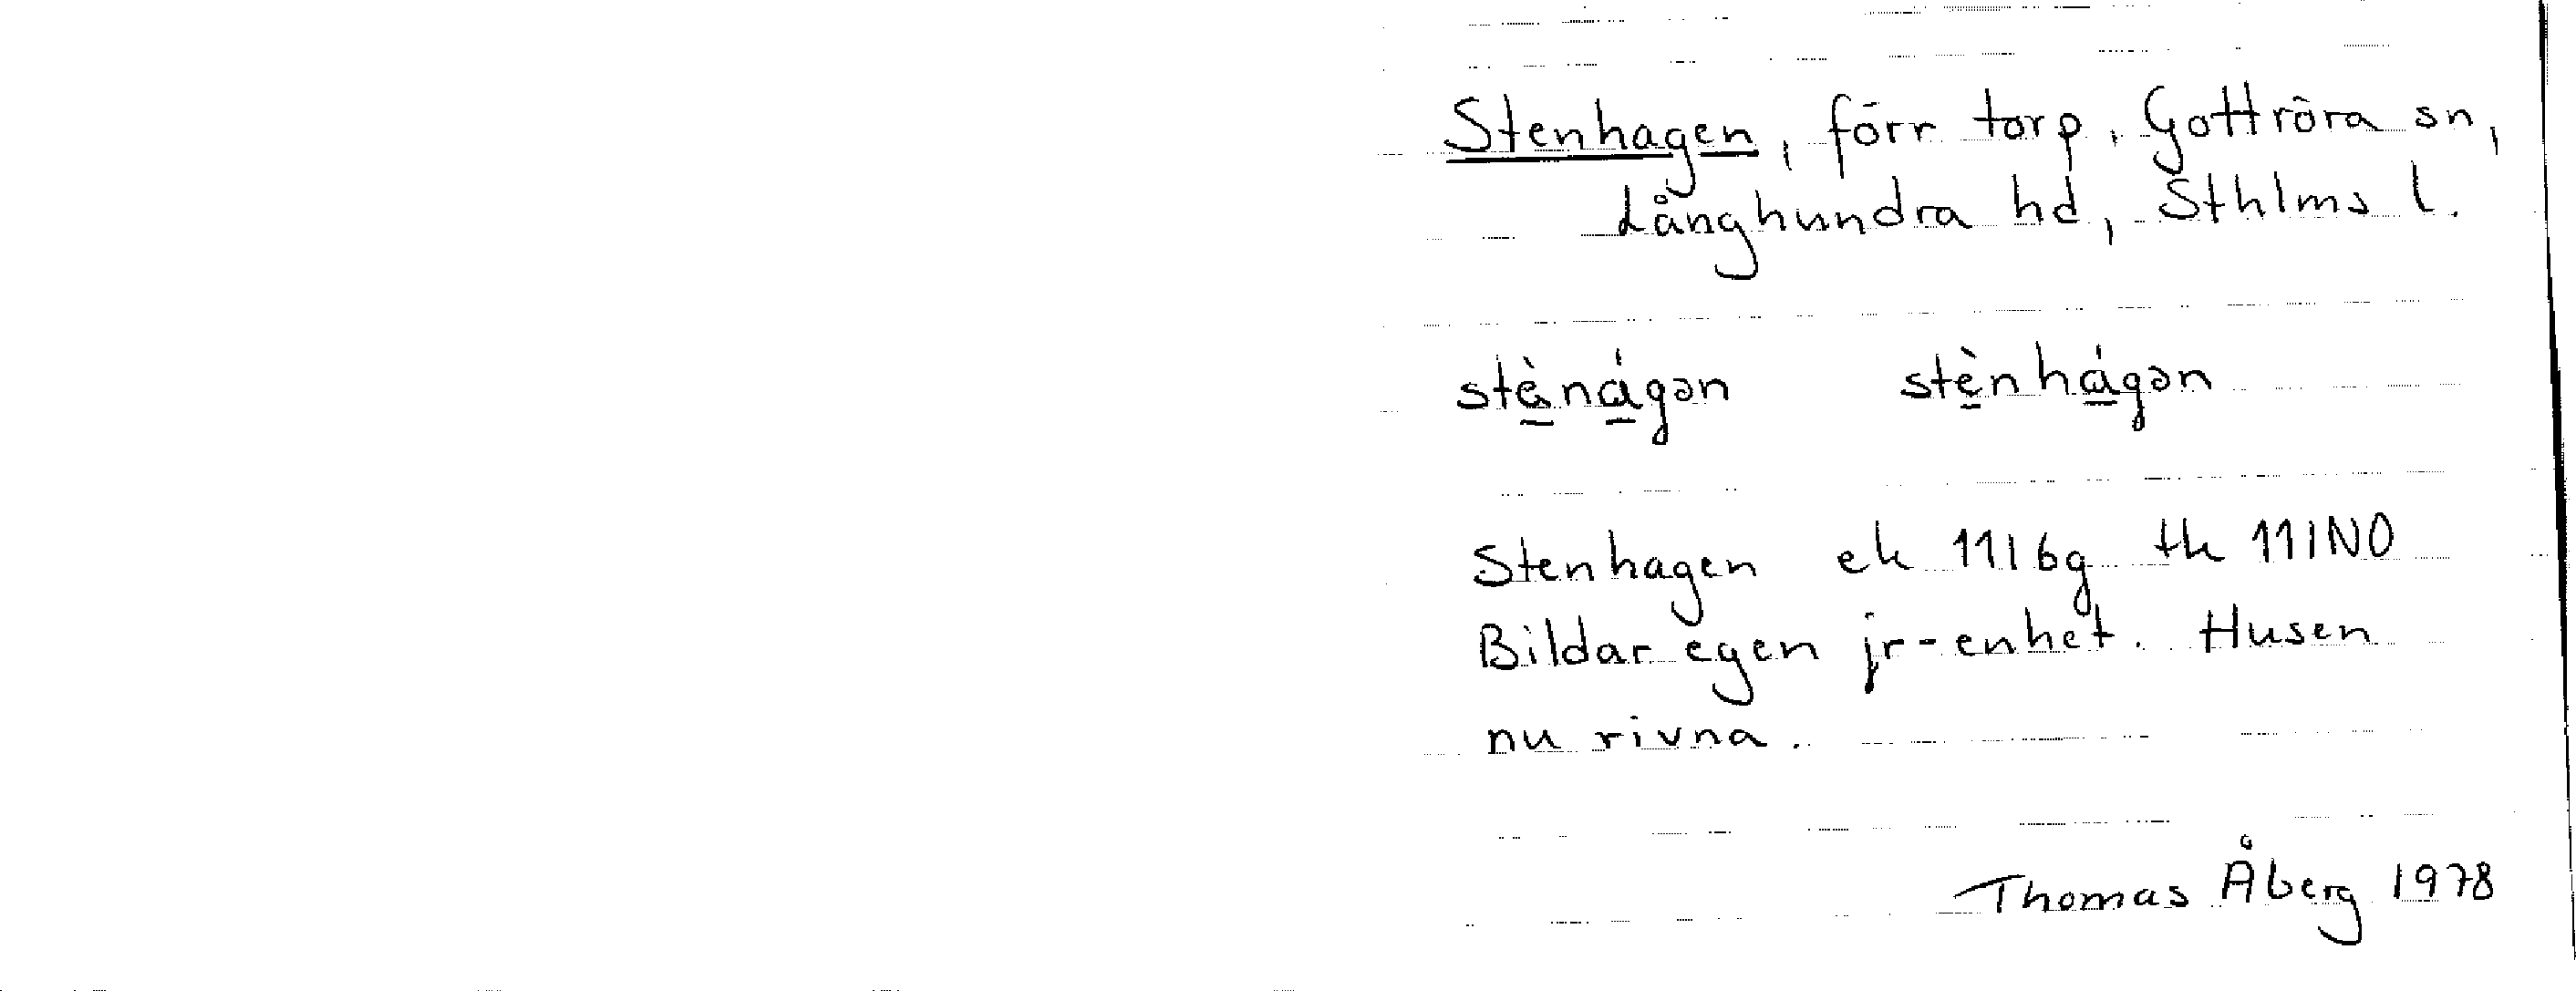 Stenhagen, förr torp, Gottröra sn,
Långhundra hd, Sthlms l.
stè̱ná̱gən stè̱nhá̱gən
Stenhagen ek 11I6g tk 11INO
Bildar egen jr-enhet. Husen
nu rivna.
Thomas Åberg 1978